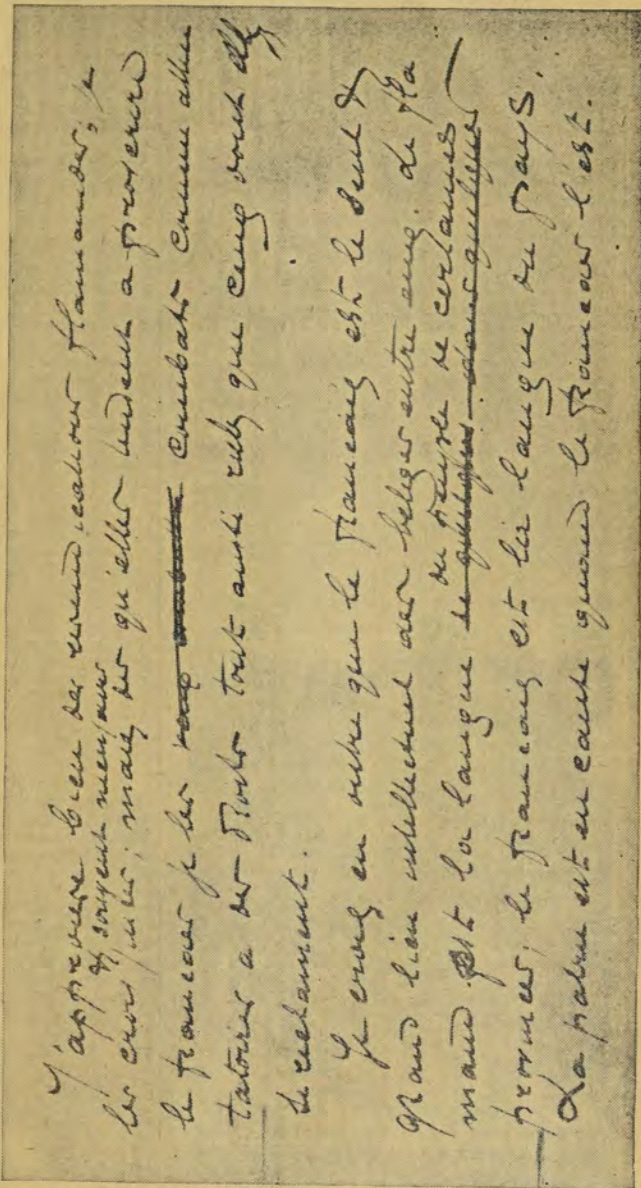 J'approuve bien des revendications flamandes; je
les crois justes & souvent ; mais dès qu'elles tendent à proscrire
le français je les combats comme atten
tatoires à des droits tout aussi réels que ceux dont elles
se réclament.
Je crois en outre que le français est le seul &
grand lien intellectuel des belges entre eux. Le fla
mand est la langue du peuple de certaines
provinces; le français est la langue du pays.
La patrie est en cause quand le français l'est.